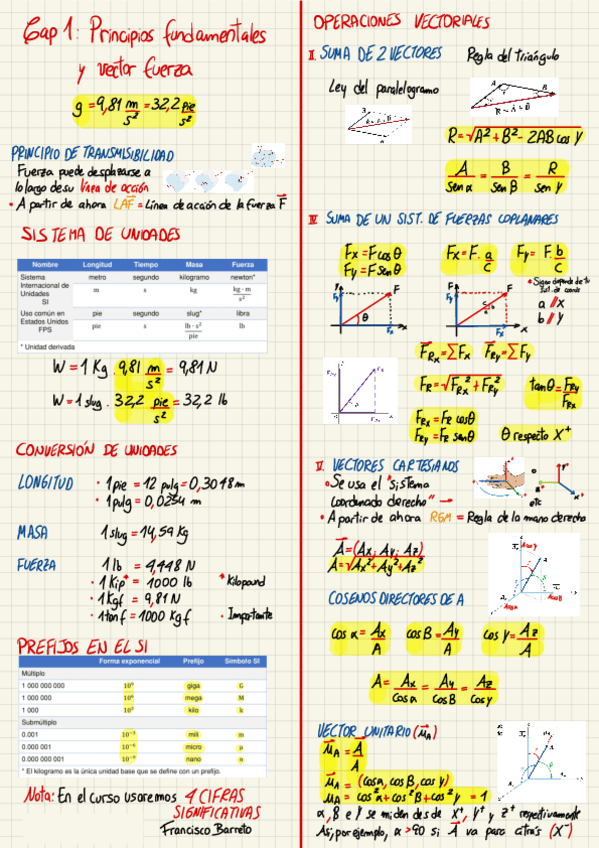 Cap 1: Principios fundamentales
y vector fuerza
g = 9,81 m/s² = 32,2 pie/s²
PRINCIPIO DE TRANSMISIBILIDAD
Fuerza puede desplazarse a
lo largo de su línea de acción
• A partir de ahora LAF = Línea de acción de la fuerza F
SISTEMA DE UNIDADES
Nombre Longitud Tiempo Masa Fuerza
Sistema Internacional de Unidades SI metro segundo kilogramo newton*
m s kg kg · m / s²
Uso común en Estados Unidos FPS pie segundo slug* libra
pie s lb · s² / pie lb
* Unidad derivada
W = 1 Kg . 9,81 m/s² = 9,81 N
W = 1 slug . 32,2 pie/s² = 32,2 lb
CONVERSIÓN DE UNIDADES
LONGITUD • 1 pie = 12 pulg = 0,3048 m
• 1 pulg = 0,0254 m
MASA 1 slug = 14,59 Kg
FUERZA 1 lb = 4,448 N
• 1 Kip* = 1000 lb * Kilopound
• 1 Kgf = 9,81 N
• 1 tonf = 1000 Kgf • Importante
PREFIJOS EN EL SI
Forma exponencial Prefijo Símbolo SI
Múltiplo
1 000 000 000 10⁹ giga G
1 000 000 10⁶ mega M
1 000 10³ kilo k
Submúltiplo
0.001 10⁻³ mili m
0.000 001 10⁻⁶ micro μ
0.000 000 001 10⁻⁹ nano n
* El kilogramo es la única unidad base que se define con un prefijo.
Nota: En el curso usaremos 4 CIFRAS
SIGNIFICATIVAS
Francisco Barreto
OPERACIONES VECTORIALES
II. SUMA DE 2 VECTORES Regla del triángulo
Ley del paralelogramo
R = A + B
R = √A² + B² - 2AB cos γ
A / sen α = B / sen β = R / sen γ
IV. SUMA DE UN SIST. DE FUERZAS COPLANARES
Fx = F cos θ Fx = F. a/c Fy = F. b/c
Fy = F sen θ
a // x
b // y
FRx = ΣFx FRy = ΣFy
FR = √FRx² + FRy² tan θ = FRy/FRx
FRx = FR cos θ
FRy = FR sen θ θ respecto X⁺
V. VECTORES CARTESIANOS
• Se usa el "sistema
coordenado derecho" →
etc
• A partir de ahora RGM = Regla de la mano derecha
A = (Ax; Ay; Az)
A = √Ax² + Ay² + Az²
COSENOS DIRECTORES DE A
cos α = Ax/A cos β = Ay/A cos γ = Az/A
A = Ax/cos α = Ay/cos β = Az/cos γ
VECTOR UNITARIO (μA)
μA = A/A
μA = (cos α, cos β, cos γ)
μA = cos²α + cos²β + cos²γ = 1
α, β e γ se miden desde X⁺, Y⁺ y Z⁺ respectivamente
Así, por ejemplo, α > 90 si A va para atrás (X⁻)